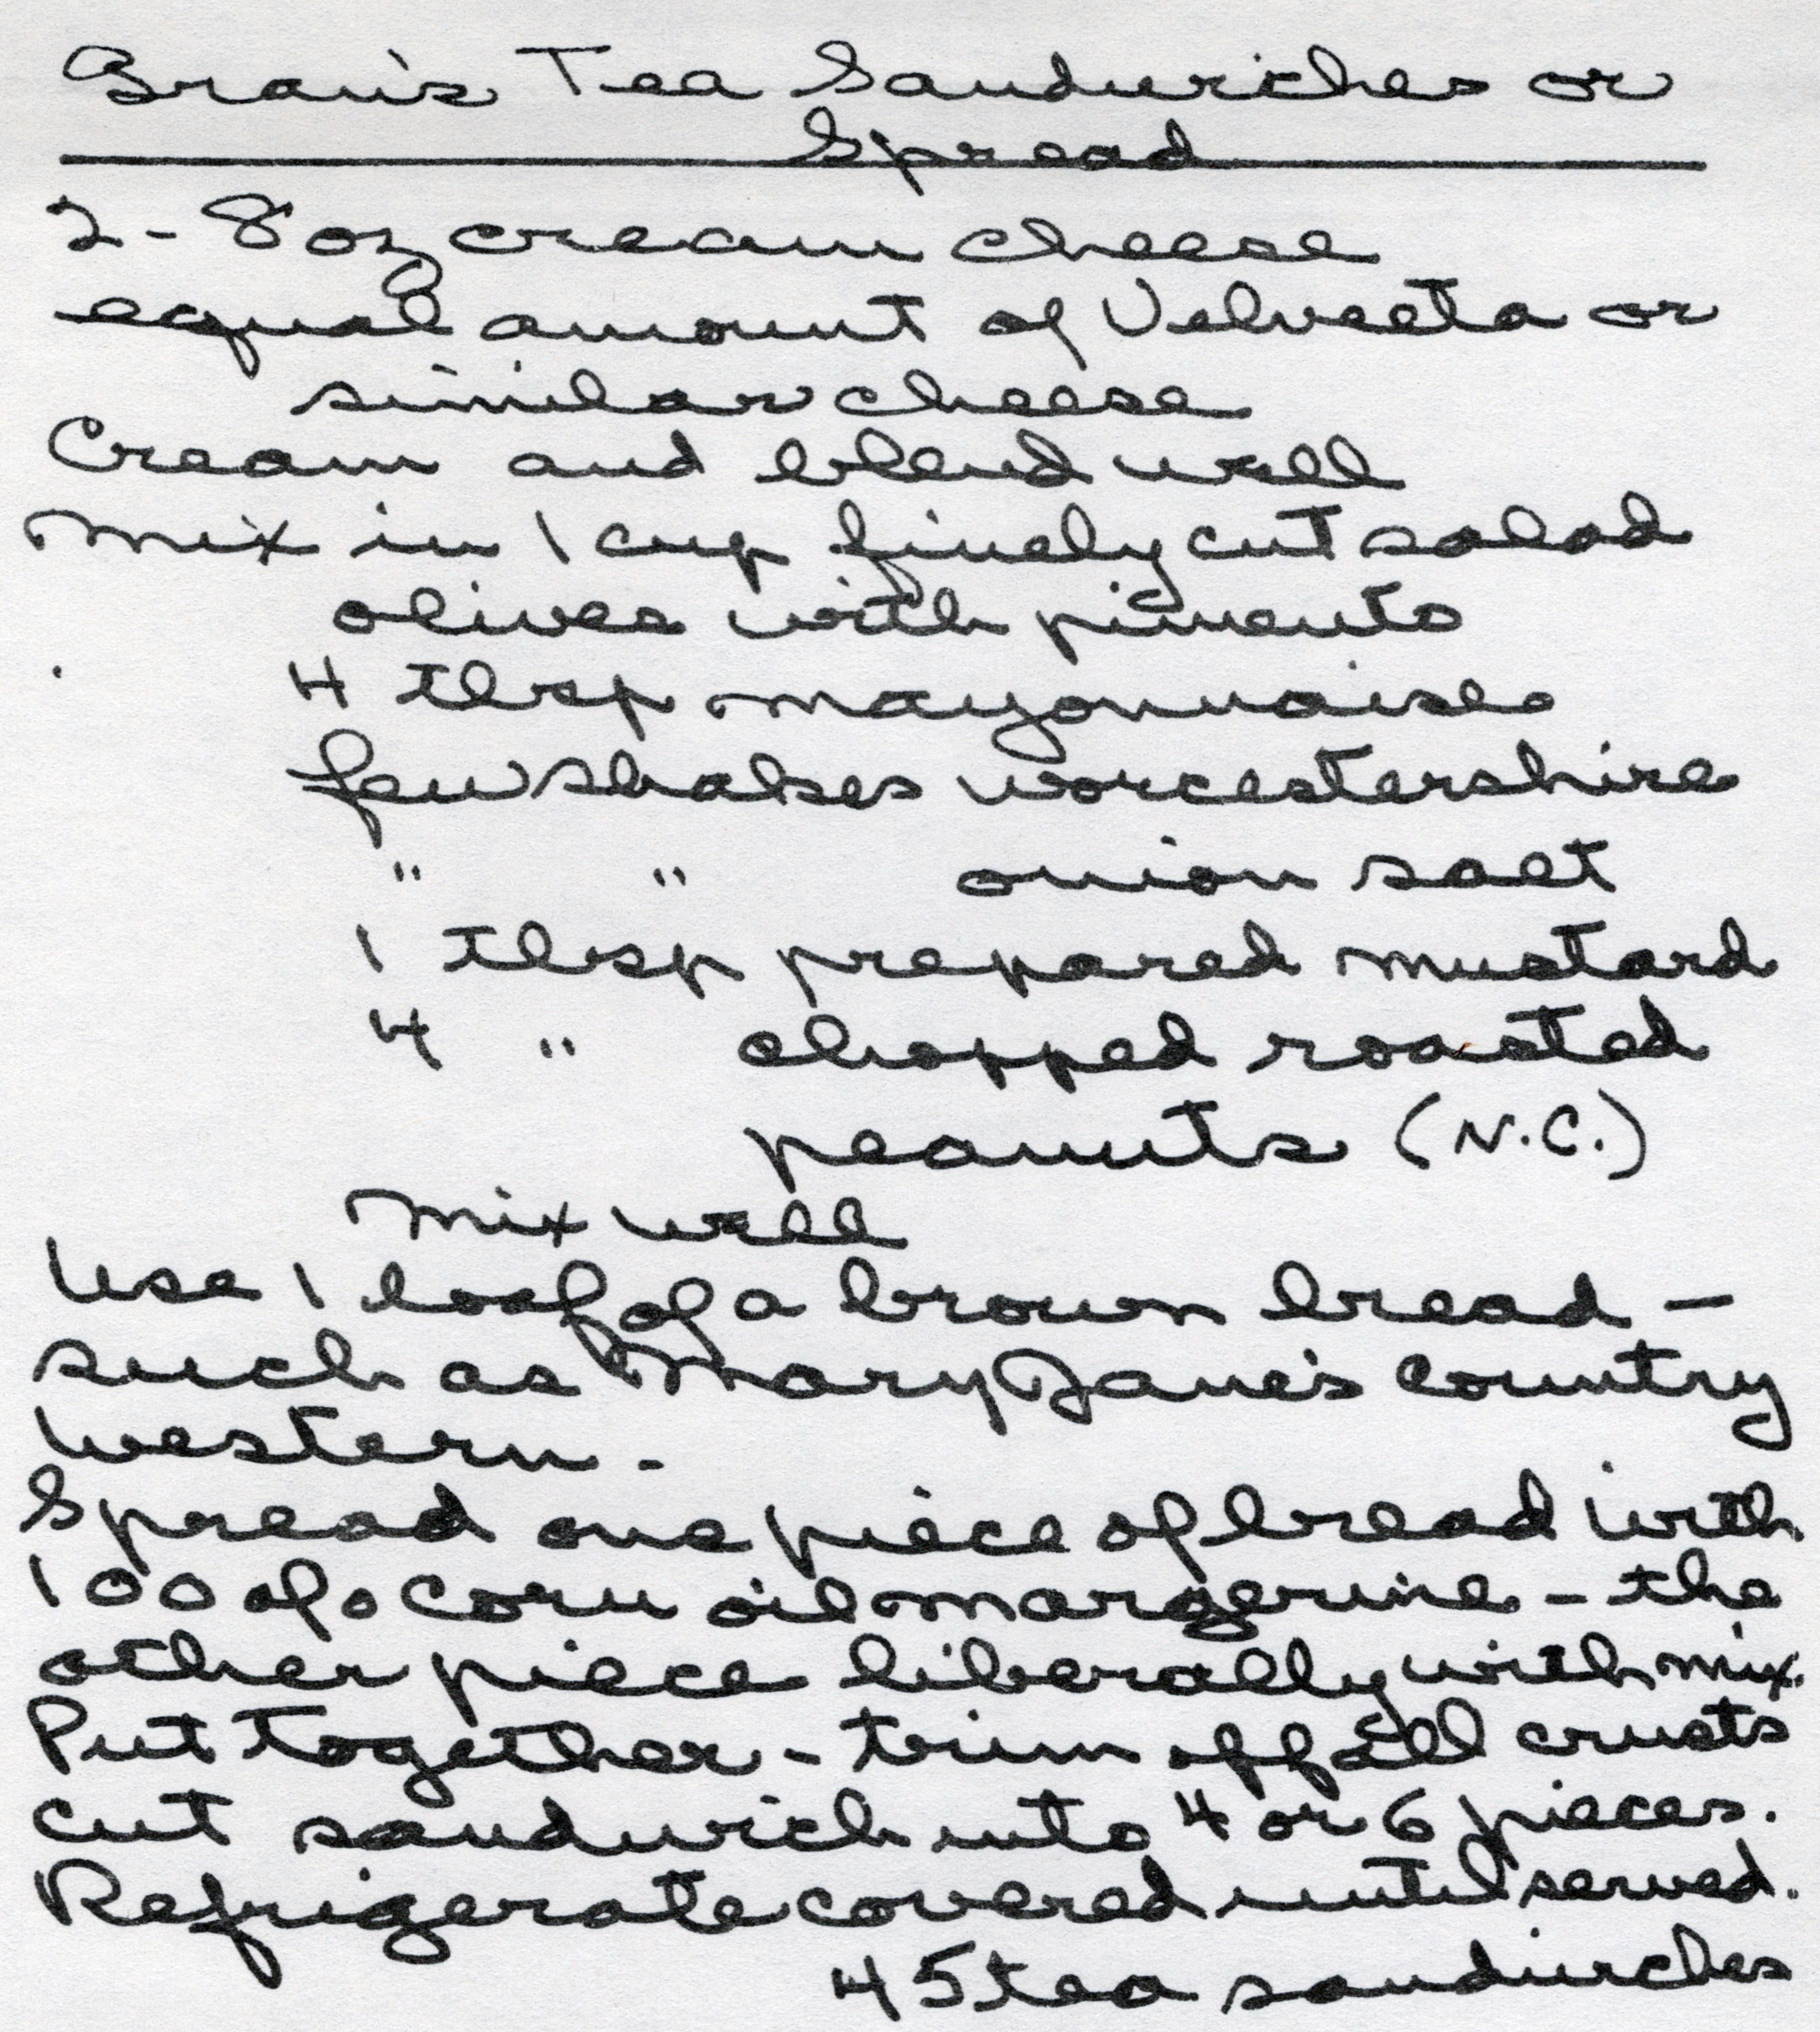 Gran's Tea Sandwiches or
Spread
2 - 8 oz cream cheese
equal amount of Velveeta or
similar cheese
Cream and blend well
Mix in 1 cup finely cut salad
olives with pimento
4 tbsp mayonnaise
few shakes worcestershire
" " onion salt
1 tbsp prepared mustard
4 " chopped roasted
peanuts (N.C.)
Mix well
Use 1 loaf of a brown bread -
such as Mary Jane's Country
Western.
Spread one piece of bread with
100 o/o corn oil margerine - the
other piece liberally with mix.
Put together - trim off all crusts
cut sandwich into 4 or 6 pieces.
Refrigerate covered until served.
45 tea sandwiches